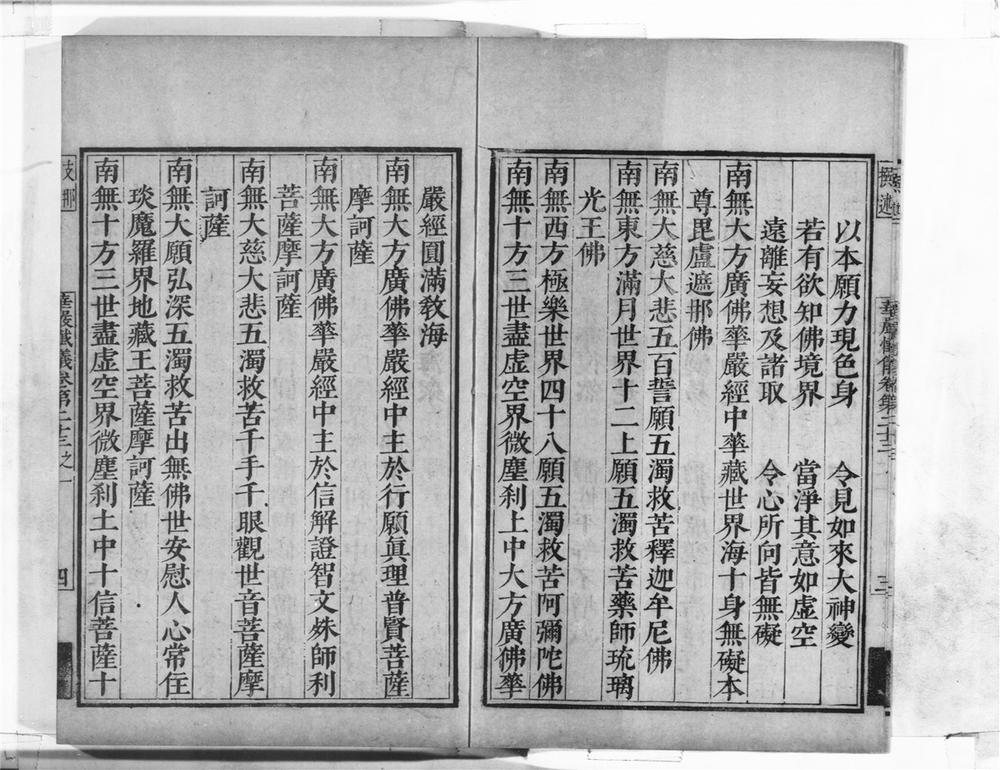 以本願力現色身 令見如來大神變
若有欲知佛境界 當淨其意如虛空
遠離妄想及諸取 令心所向皆無礙
南無大方廣佛華嚴經中華藏世界海十身無礙本
尊毘盧遮那佛
南無大慈大悲五百誓願五濁救苦釋迦牟尼佛
南無東方滿月世界十二上願五濁救苦藥師琉璃
光王佛
南無西方極樂世界四十八願五濁救苦阿彌陀佛
南無十方三世盡虛空界微塵刹土中大方廣佛華
嚴經圓滿教海
南無大方廣佛華嚴經中主於行願眞理普賢菩薩
摩訶薩
南無大方廣佛華嚴經中主於信解證智文殊師利
菩薩摩訶薩
南無大慈大悲五濁救苦千手千眼觀世音菩薩摩
訶薩
南無大願弘深五濁救苦出無佛世安慰人心常住
琰魔羅界地藏王菩薩摩訶薩
南無十方三世盡虛空界微塵刹土中十信菩薩十
華嚴懺儀卷第二十三之一
四